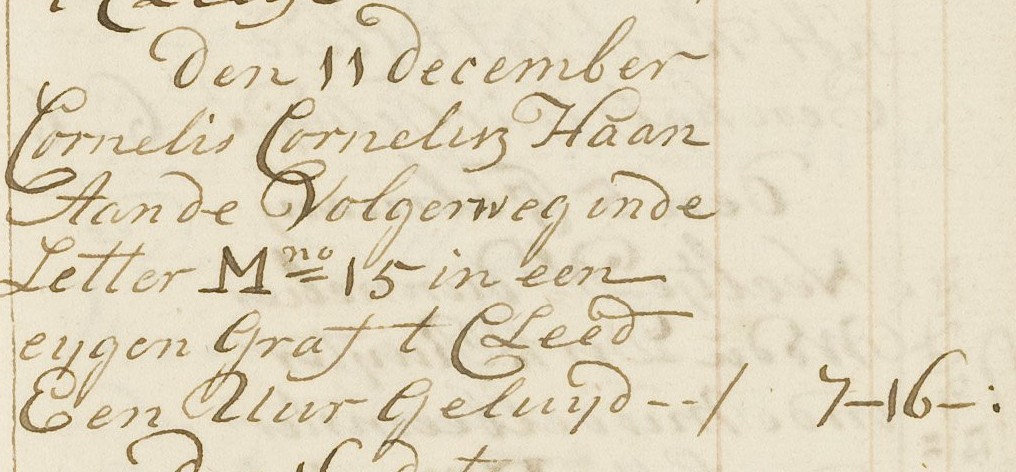 Den 11 december
Cornelis Cornelisz Haan
Aande Volgerweg inde
Letter M no 15 in een
eygen Graft t Cleed
Een Uur Geluyd --/ 7-16-: